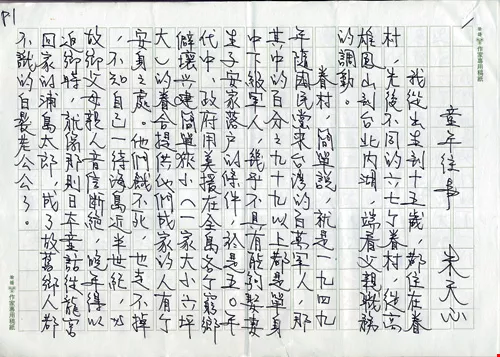 P1
1
童年往事 朱天心
我從出生到十五歲,都住在眷
村,先後不同的六七个眷村,從高
雄鳳山到台北內湖,端看父親職務
的調動。
眷村,簡單說,就是一九四九
年隨國民黨來台灣的百萬軍人,那
其中的百分之九十九以上都是單身
中下級軍人,幾乎不具有能夠娶妻
生子安家落戶的條件,於是五〇年
代中,政府用美援在全島各个窮鄉
僻壤興建簡單狹小(一家大小六坪
大)的眷舍提供他們成家的人有了
安身之處。他們餓不死,也走不掉
,不知自己一待海島近半世紀,与
故鄉父母親人音信斷絕,晚年得以
返鄉時,就像那則日本童話從龍宮
回家的浦島太郎,成了故舊鄉人都
不識的白髮老公公了。
作家專用稿紙
作家專用稿紙